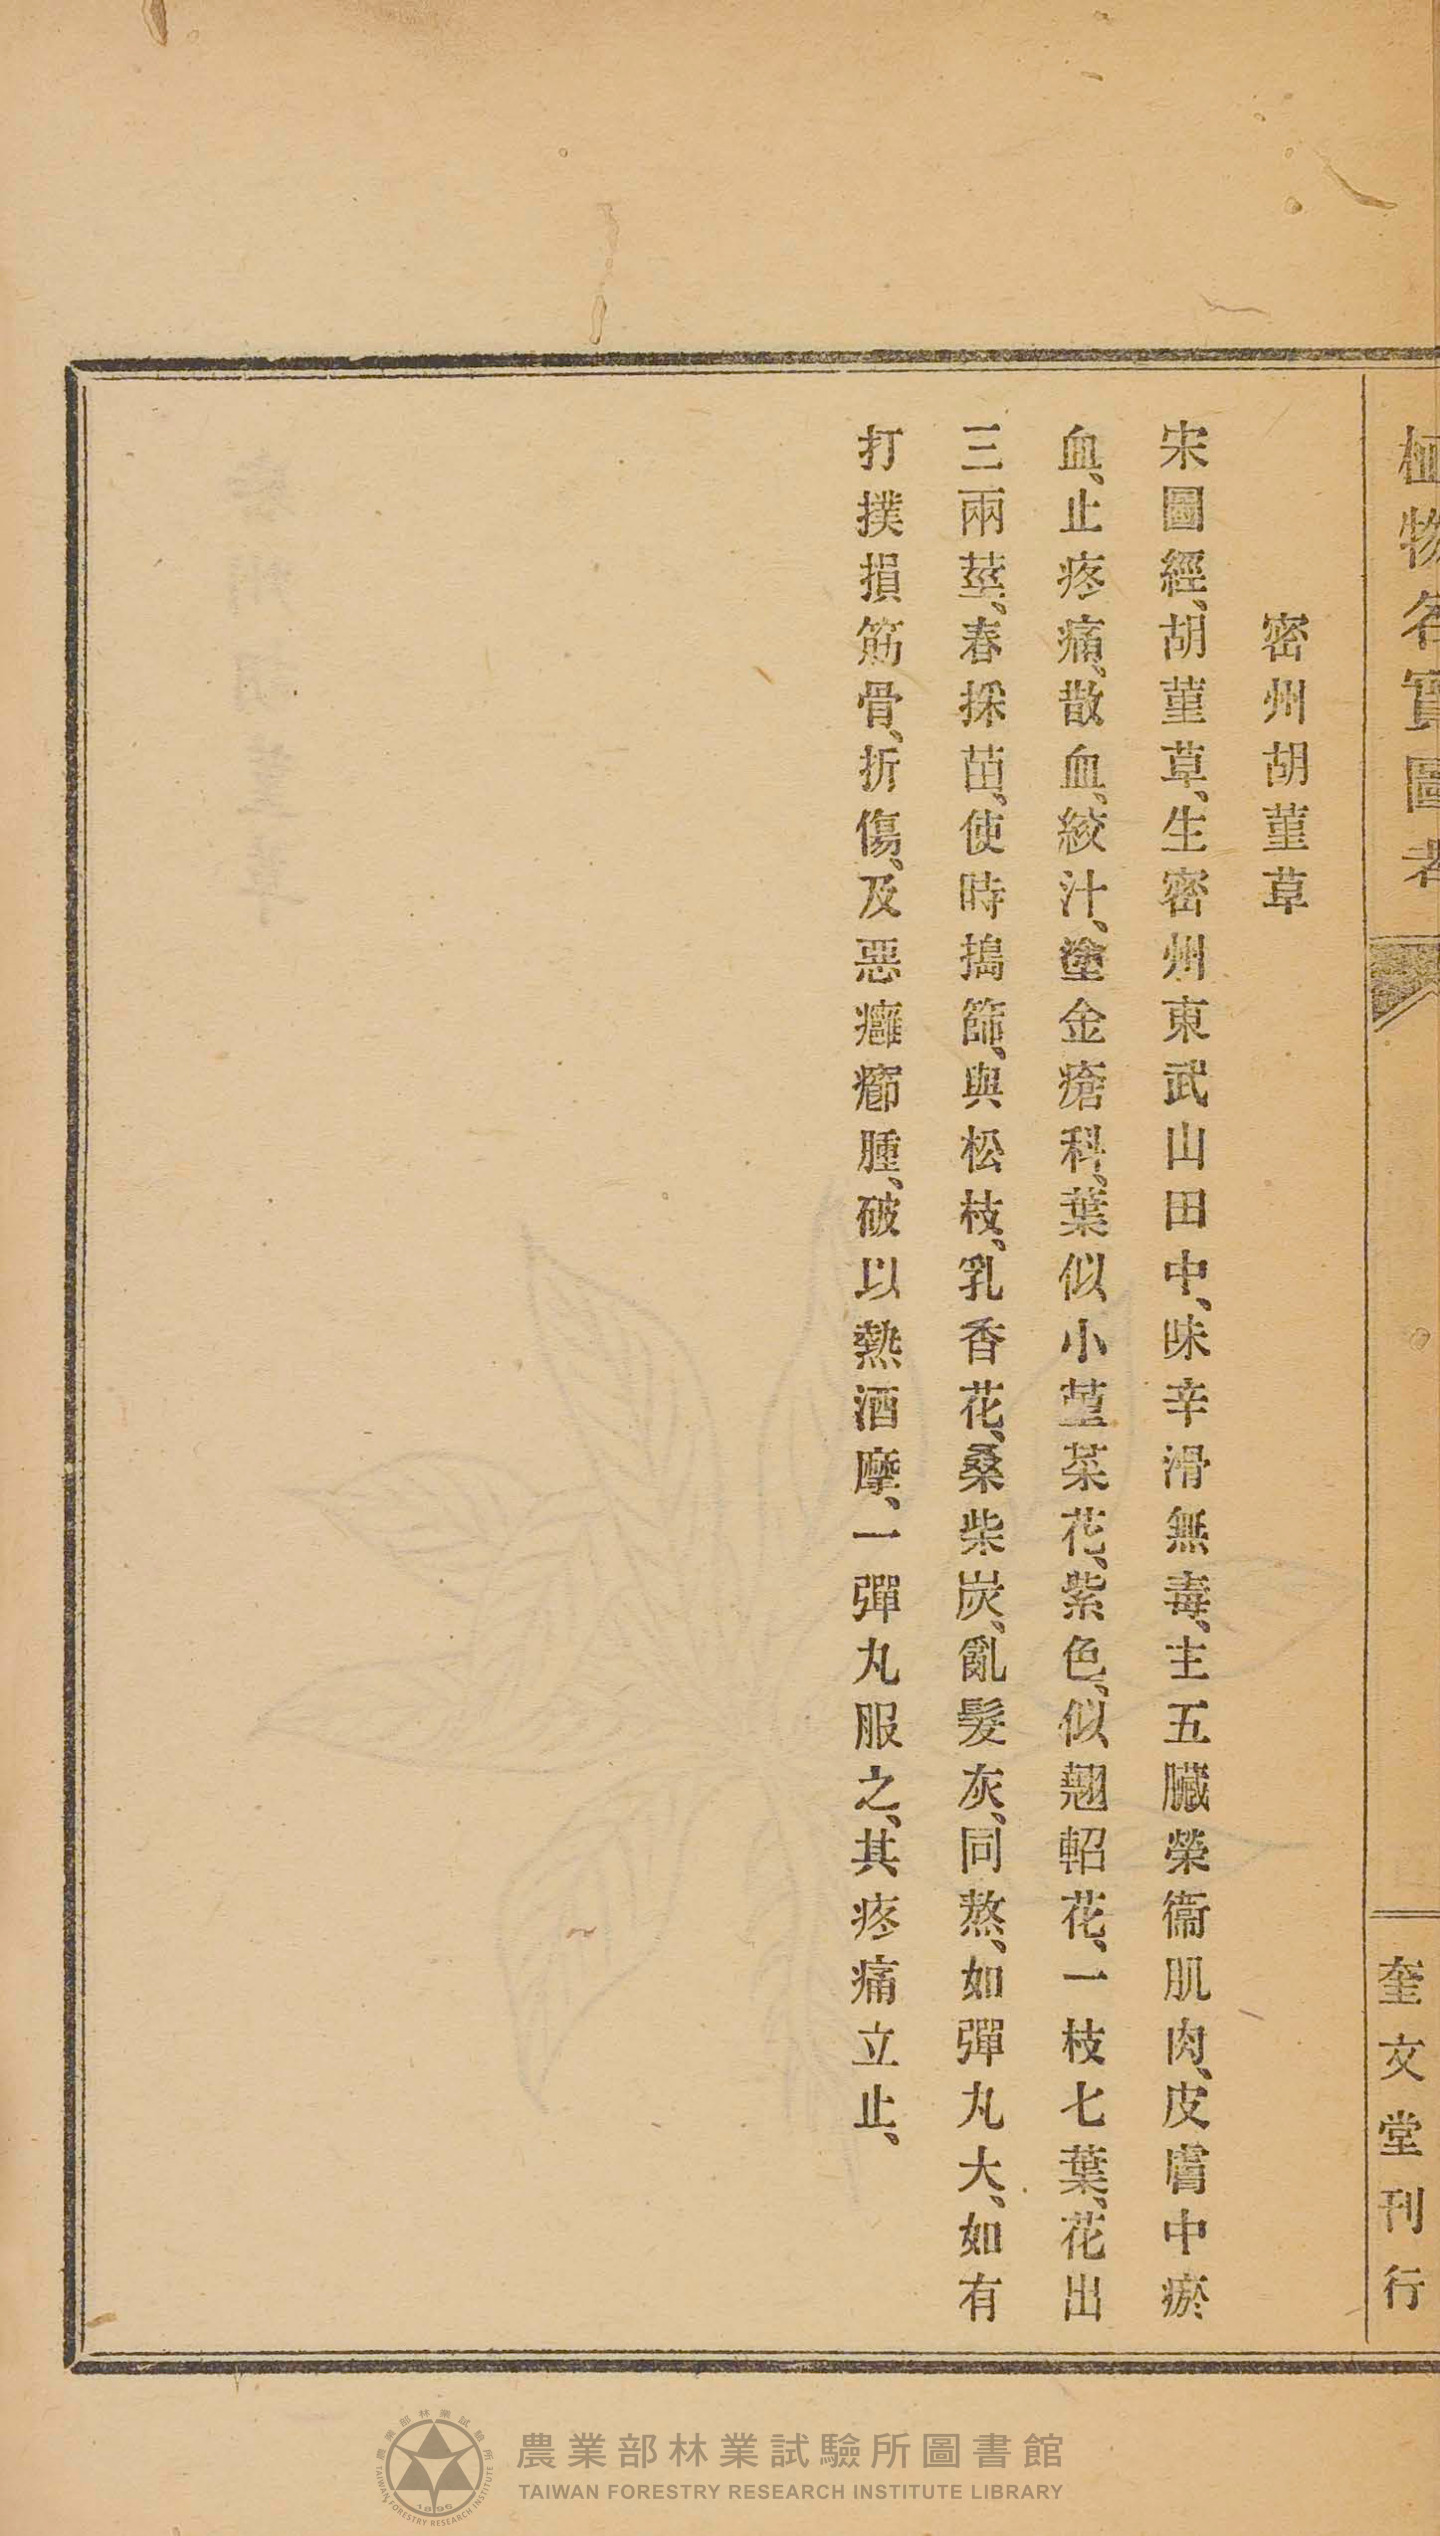 植物名實圖考
奎文堂刊行
密州胡菫草
宋圖經、胡菫草、生密州東武山田中、味辛滑無毒、主五臟榮衞肌肉、皮膚中瘀
血、止疼痛、散血、絞汁、塗金瘡科、葉似小菫菜花、紫色、似翹軺花、一枝七葉、花出
三兩莖、春採苗、使時搗篩、與松枝、乳香花、桑柴炭、亂髮灰、同熬、如彈丸大、如有
打撲損筋骨、折傷、及惡癰癤腫、破以熱酒摩、一彈丸服之、其疼痛立止、
農業部林業試驗所圖書館
TAIWAN FORESTRY RESEARCH INSTITUTE LIBRARY
農業部林業試驗所
TAIWAN FORESTRY RESEARCH INSTITUTE
1896